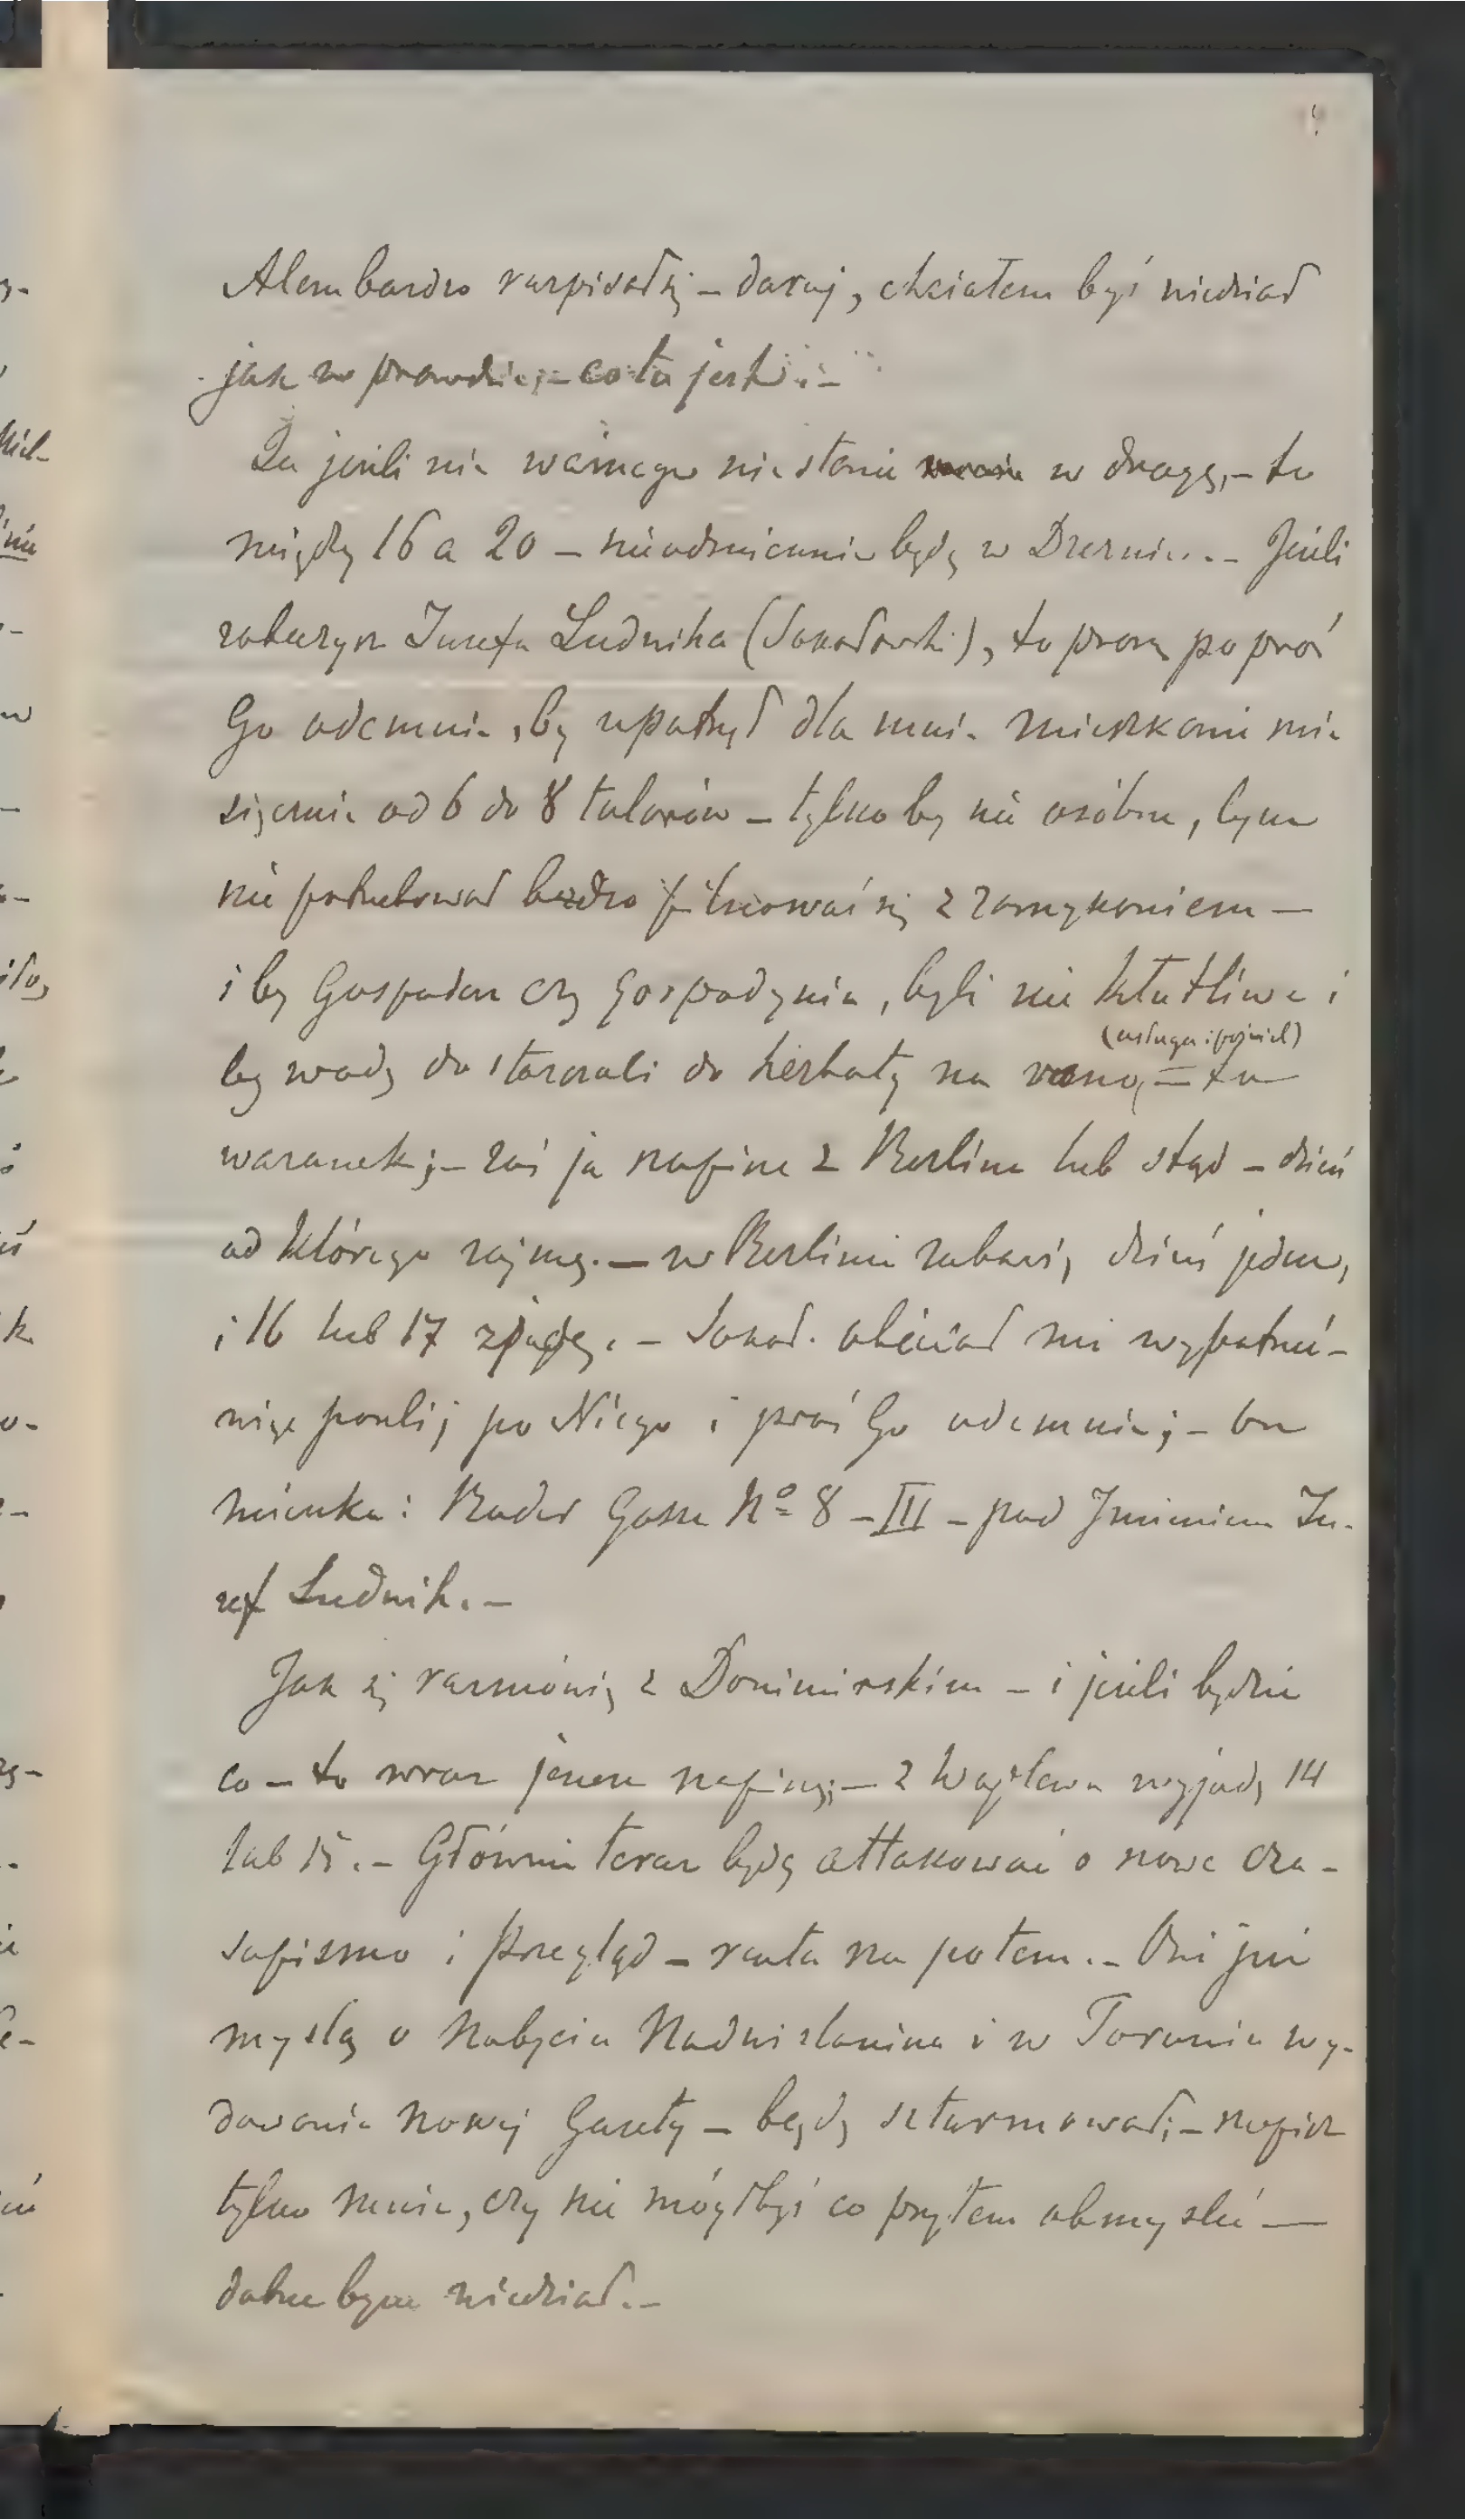 Alem bardzo rozpisał się – daruj, chciałem byś wiedział
jak w prawdzie, – co tu jest. –
Ja jeżeli nic ważnego nie stanie w drogę, – to
między 16 a 20 – nieodmiennie będę w Dreznie. – Jeżeli
zobaczysz Józefa Ludwika (Sokołowski), to proszę poproś
Go odemnie, by upatrzył dla mnie mieszkanie mie-
sięcznie od 6 do 8 talarów – tylko by nie osóbne, bym
nie potrzebował bardzo pilnować się z zamykaniem –
i by Gospodarz czy Gospodynia, byli nie kłótliwe i
(usługa i pościel)
by wodę dostarczali do herbaty na rano, – to
warunek; – zaś ja napiszę z Berlina lub stąd – dzień
od którego zajmę. – w Berlinie zabawię dzień jeden,
i 16 lub 17 zjadę. – Sokoł. obiecał mi wypatrzeć –
więc poszlij po Niego i proś Go odemnie; – on
mieszka: Bader Gasse No 8 – III – pod Imieniem Jó-
zef Ludwik. –
Jak się rozmówię z Donimirskim – i jeżeli będzie
co – to wraz jeszcze napiszę; – z wyjadę 14
lub 15. – Głównie teraz będę attakować o nowe cza-
sopismo i Przegląd – reszta na potem. – Oni już
myślą o nabyciu Nadwiślanina i w Toruniu wy-
dawania nowej Gazety – będę szturmował; – napisz
tylko mnie, czy nie mógłbyś co przytem obmyśleć –
dobrze bym wiedział. –